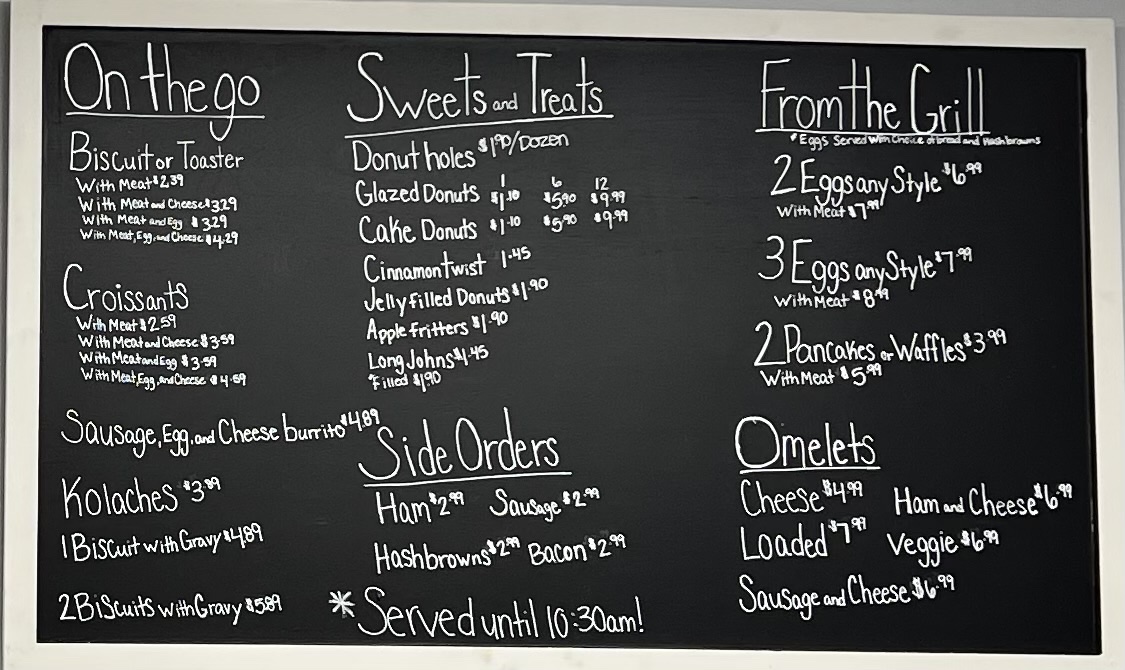 On the go
Biscuit or Toaster
With Meat $2.39
With Meat and Cheese $3.29
With Meat and Egg $3.29
With Meat, Egg, and Cheese $4.29
Croissants
With Meat $2.59
With Meat and Cheese $3.59
With Meat and Egg $3.59
With Meat, Egg, and Cheese $4.59
Sausage, Egg, and Cheese burrito $4.89
Kolaches $3.89
1 Biscuit with Gravy $4.89
2 Biscuits with Gravy $5.89
Sweets and Treats
Donut holes $1.90/Dozen
1 6 12
Glazed Donuts $1.10 $5.90 $9.99
Cake Donuts $1.10 $5.90 $9.99
Cinnamon twist 1.45
Jelly filled Donuts $1.90
Apple fritters $1.90
Long Johns $1.45
*Filled $1.90
Side Orders
Ham $2.99 Sausage $2.99
Hashbrowns $2.99 Bacon $2.99
* Served until 10:30am!
From the Grill
*Eggs Served With Choice of bread and Hashbrowns
2 Eggs any Style $6.99
With Meat $7.99
3 Eggs any Style $7.99
With Meat $8.99
2 Pancakes or Waffles $3.99
With Meat $5.99
Omelets
Cheese $4.99 Ham and Cheese $6.99
Loaded $7.99 Veggie $6.99
Sausage and Cheese $6.99